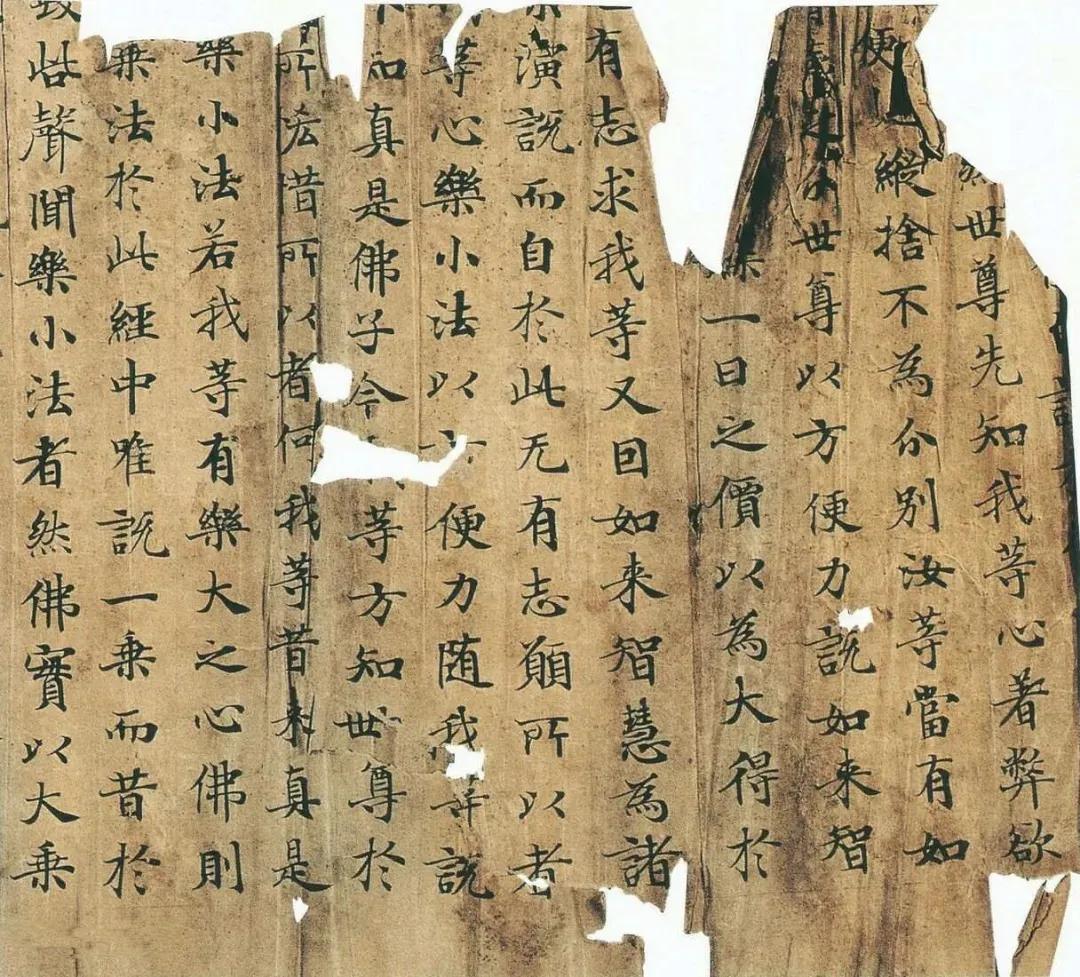 然世尊先知我等心著弊欲
便縱捨不為分別汝等當有如
分世尊以方便力說如來智
一日之價以為大得於
有志求我等又囙如來智慧為諸
演說而自於此无有志願所以者
等心樂小法以便力随我說
而真是佛子今等方知世尊於
所惜所以者何我等昔来真是
樂小法若我等有樂大之心佛則
乘法於此經中唯說一乘而昔於
毀呰聲聞樂小法者然佛實以大乘